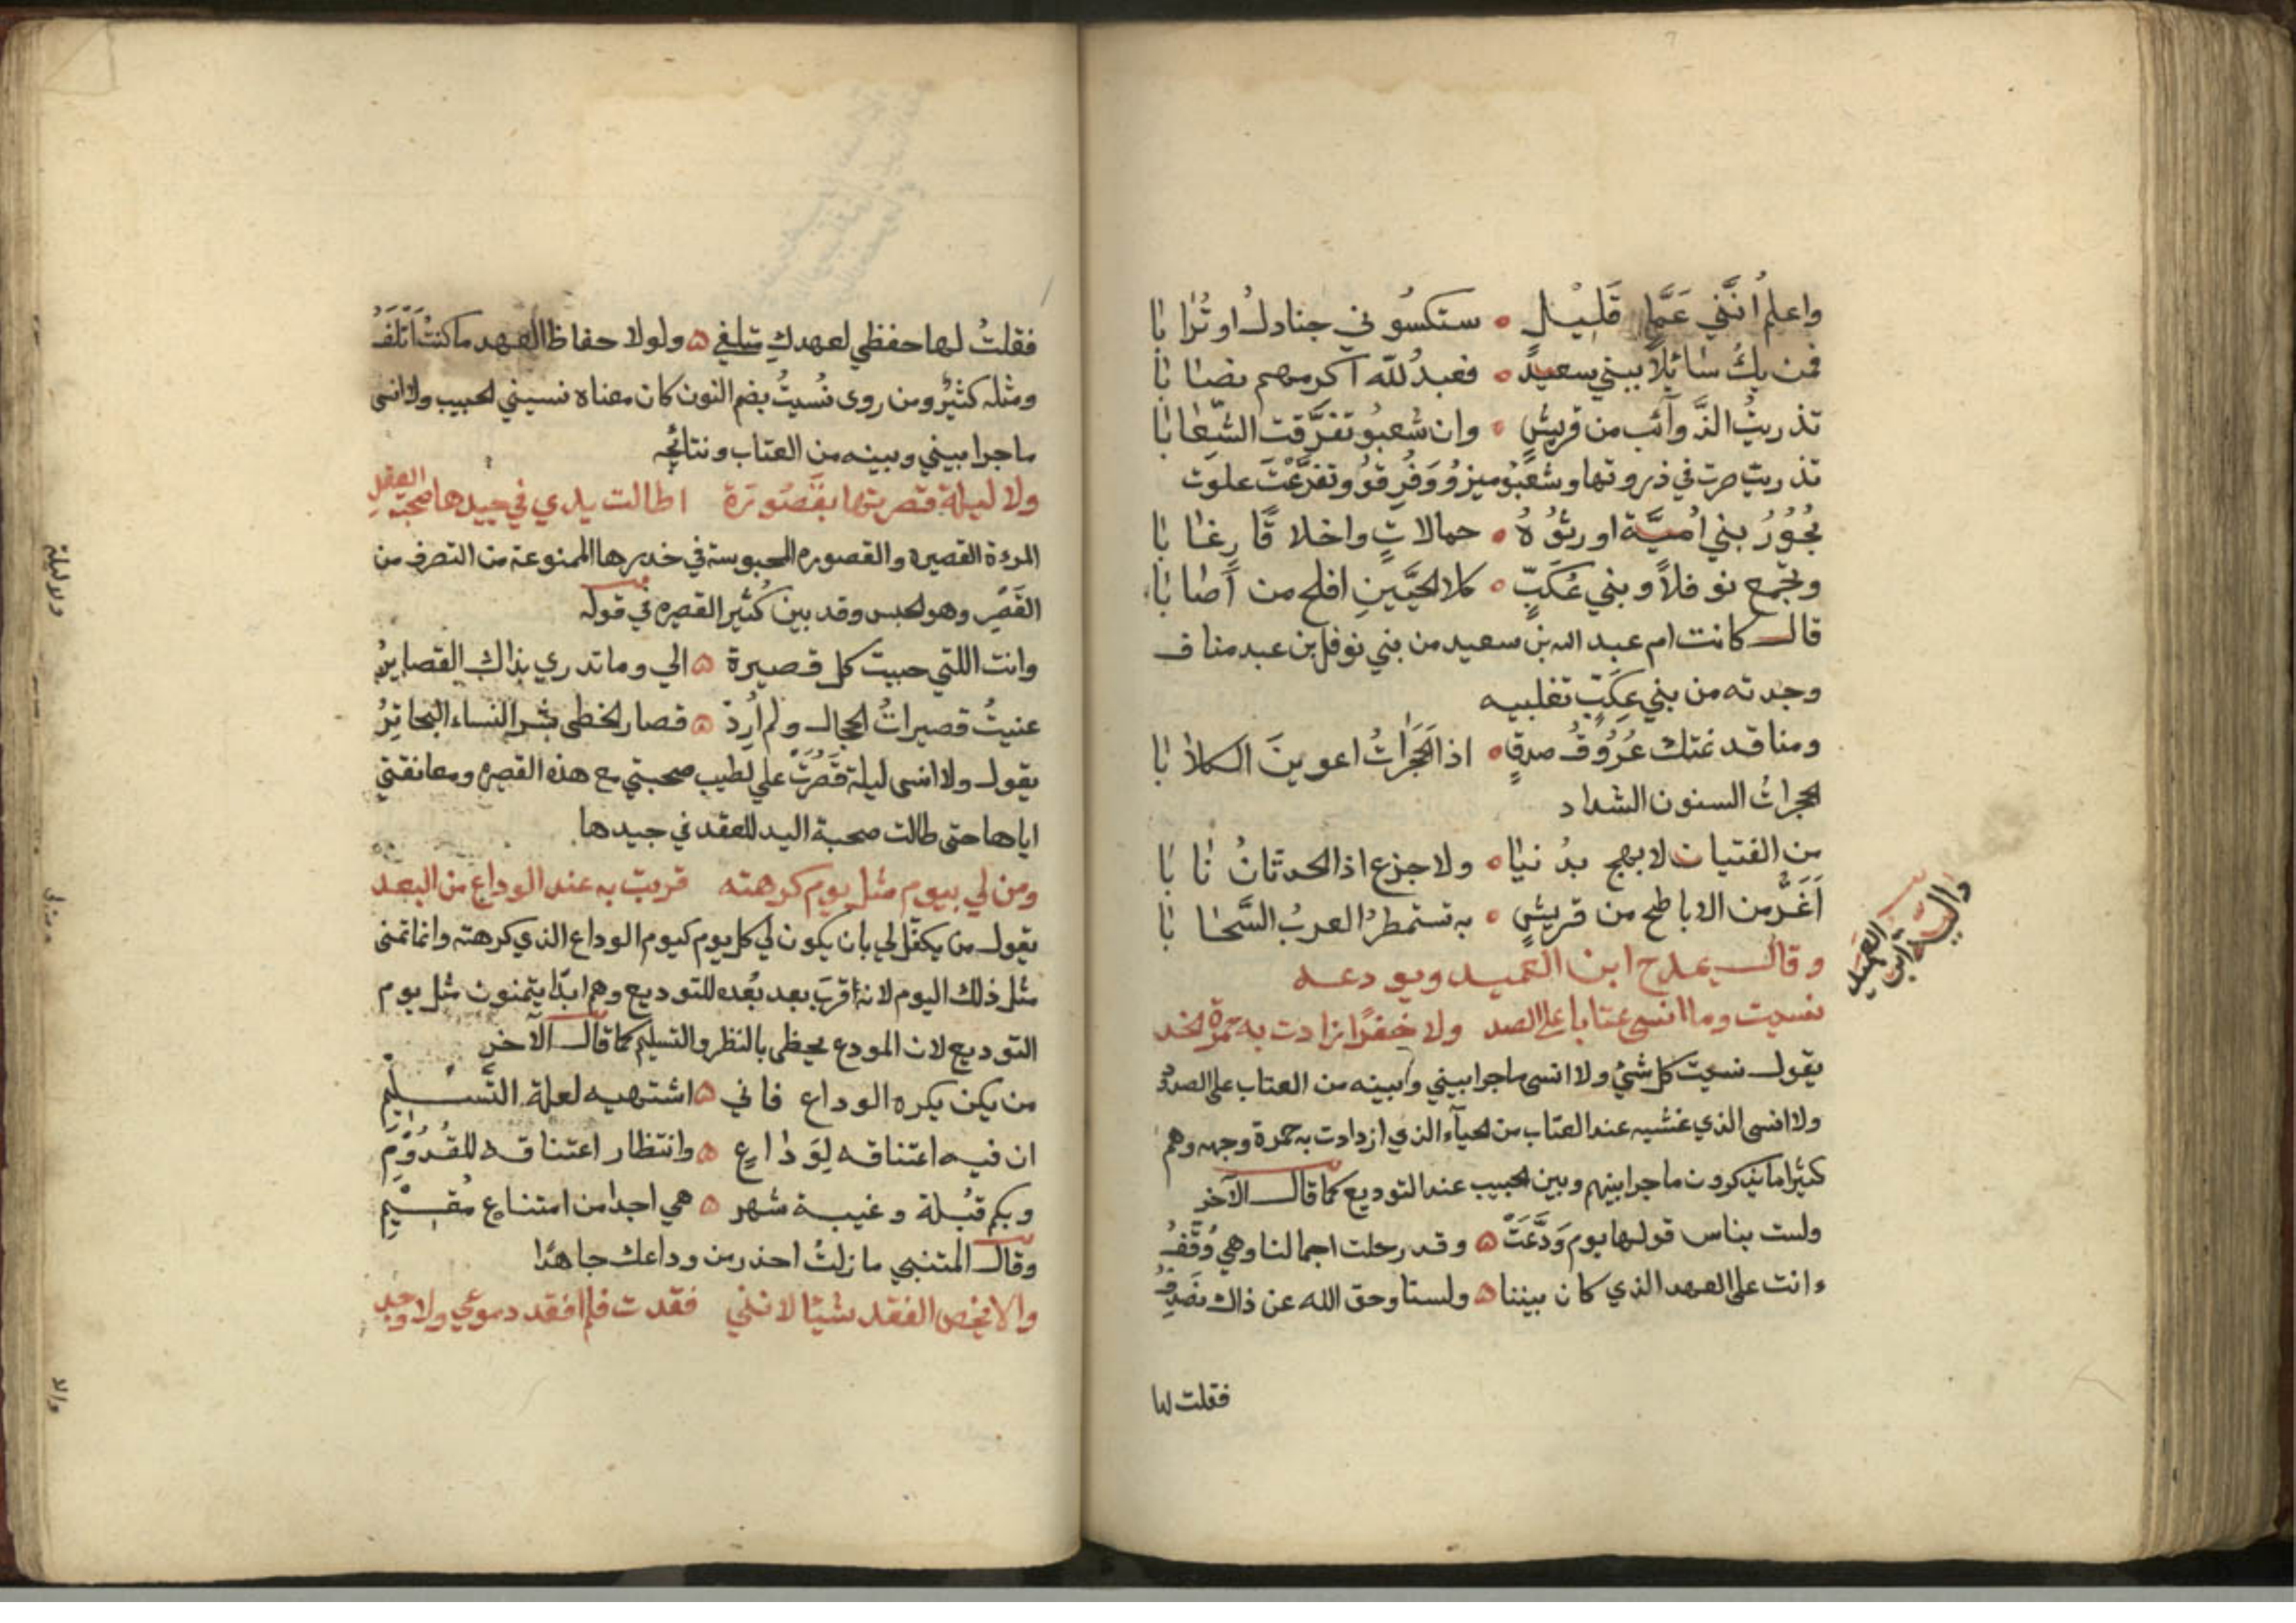 واعلمُ انَّني عَمَّا قَلِيْلٍ ه ستكسُوني جنادلُ او تُرابَا
فمن يكُ سائلًا ببني سعيدٍ ه فعبدُ للّه اكرمهم نصابَا
تذريتُ الذَّوآئب من قريشٍ ه وان شُعبُو تفرَّقت الشِّعابَا
تذريت صرت في ذروتها وشُعّبُو ميزو وَفُرِّقوُ وتفرَّعْتَ علوت
بُحُوُرُ بني اُميَّة اورثوُهُ ه حمالاتٍ واخلاقًا رِغابَا
وتجمع نوفلاً وبني عُكبٍّ ه كلا الحيَّينِ افلح من اَصابَا
قال كانت ام عبد الله بن سعيد من بني نوفل بن عبد مناف
وجدته من بني عِكَبٍّ تغلبيه
ومنا قد نمتك عُرُوُقُ صدقٍ ه اذا الحَجَراتُ اعوينَ الكلابَا
الحجراتُ السنون الشداد
من الفتيان لا بهج بدُنيا ه ولا جزع اذا الحدثانُ نابَا
اَغَرُّ من الاباطح من قريشٍ ه به تستمطرُ العربُ السَّحابَا
وقال يمدح ابن العميد ويودعه
والسيد ابن العميد
نسيت وما انسى عتابا على الصد ولا خفرًا زادت به حمرة الخد
يقول نسيت كل شئ ولا انسى ما جرا بيني وبينه من العتاب على الصدود
ولا انسى الذي غشيه عند العتاب من الحيآء الذي ازدادت به حمرة وجهه وهم
كثيرا ما يذكرون ما جرا بينهم وبين الحبيب عند التوديع كما قال الآخر
ولست بناس قولها يوم وَدَّعَتْ ه وقد رحلت اجمالنا وهي وُقَّفُ
ءانت على العهد الذي كان بيننا ه ولسنا وحق الله عن ذاك نصدِفُ
فقلت لها
فقلتُ لها حفظي لعهدكِ متلفي ه ولولا حفاظ العهد ما كنتُ اَتلَفُ
ومثله كثيرٌ ومن روى نُسيتُ بضم النون كان معناه نسيني الحبيب ولا انسى
ما جرا بيني وبينه من العتاب ونتائجه
ولا ليلة قصرتها بقَصُورة اطالت يدي في جيدها صحبة العقد
المرءة القصيرة والقصوره المحبوسة في خدرها الممنوعة من التصرف من
القَصْرِ وهو الحبس وقد بين كُثير القصيره في قوله
وانت اللتي حببت كل قصيرة ه الي وما تدري بذاك القصايرُ
عنيتُ قصيراتُ الحجال ولم اُرِدْ ه قصار الخطى شر النساء البحاترُ
يقول ولا انسى ليلة قَصُرَتْ علي لطيب صحبتي مع هذه القصيره ومعانقتي
اياها حتى طالت صحبة اليد للعقد في جيدها
ومن لي بيوم مثل يوم كرهته قربت به عند الوداع من البعد
يقول من يكفّل لي بان يكون لي كل يوم كيوم الوداع الذي كرهته وانما تمنى
مثل ذلك اليوم لانه اقربَ بعد بُعده للتوديع وهم ابدًا يتمنون مثل يوم
التوديع لان المودع يحظى بالنظر والتسليم كما قال الآخر
من يكن يكره الوداع فاني ه اشتهيه لعلة التسليمِ
ان فيه اعتناقه لِوَداعٍ ه وانتظار اعتناقه للقُدُوْمِ
وبكم قُبلة وغيبة شهر ه هي اجدا من امتناع مُقيْمِ
وقال المتنبي ما زلتُ احذر من وداعك جاهدًا
والا يخص الفقد شيئا لانني فقدت فلم افقد دموعي ولا وجد
ولا ليلة
ومن لي
والا